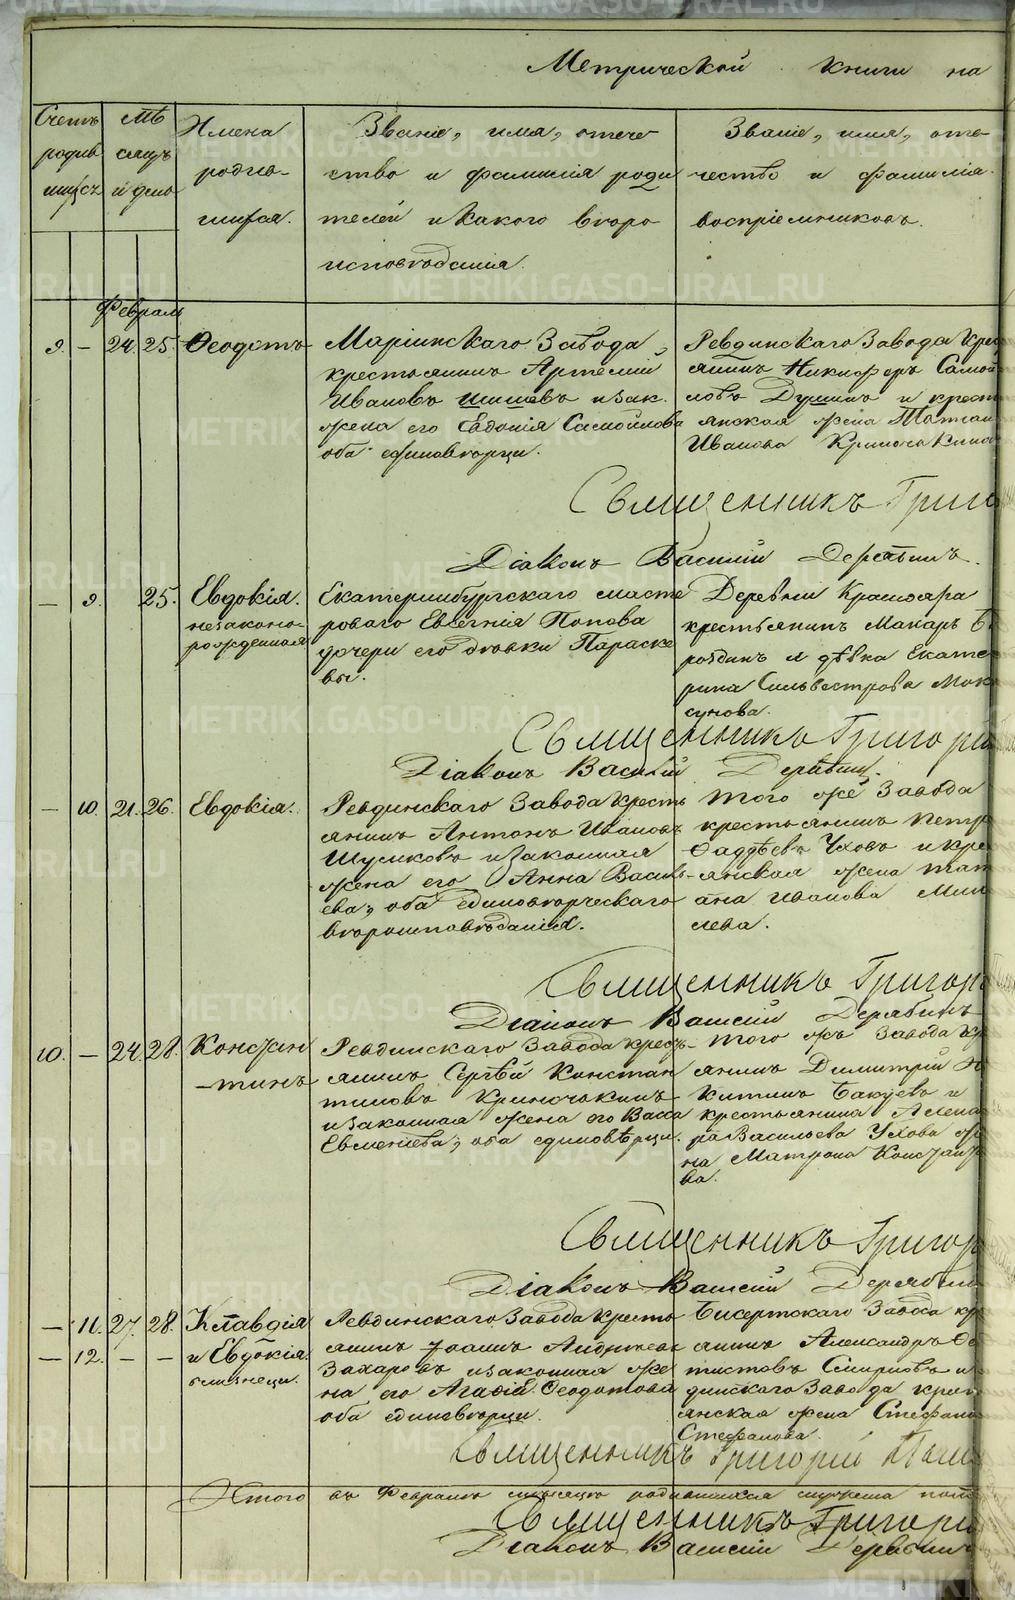 Метрической книги на
Счетъ родив шихся
Мѣ сяцъ и день
Имена родив- шихся.
Званіе, имя, отече- ство и фамилія роди телей и какого вѣро исповѣданія.
Званіе, имя, оте- чество и фамилія воспріемниковъ.
Февраль
9. — 24. 25. Ѳеодотъ
Маріинскаго Завода,
крестьянинъ Артемій
Ивановъ Шишевъ и зак.
жена его Евдокія Самойлова
оба единовѣрцы.
Ревдинскаго Завода кре
янинъ Никифоръ Самой
ловъ Душинъ и крест
янская жена Татьян
Иванова Криночкина
Священникъ Григ
Діаконъ Василій Дерябинъ.
— 9. 25. Евдокія.
незаконо-
рожденная
Екатеринбургскаго масте
роваго Евгенія Попова
дочери его дѣвки Параске
вы.
Деревни Краснояра
крестьянинъ Макаръ
роздинъ и дѣвка Екате
рина Сильвестрова Мок
сунова.
Священникъ Григорі
Діаконъ Василій Дерябин.
— 10. 21. 26. Евдокія.
Ревдинскаго Завода кресть
янинъ Антонъ Ивановъ
Шумковъ и законная
жена его Анна Василь-
ева, оба единовѣрческаго
вѣроисповѣданія.
Того же Завода
крестьянинъ Петр
Ѳаддѣевъ Уховъ и кре
янская жена Тат
ана Иванова Мин
лева.
Священникъ Григор
Діаконъ Василій Дерябинъ
10. — 24. 28. Констан
-тинъ
Ревдинскаго Завода крест-
янинъ Сергѣй Констан
тиновъ Криночкинъ
и законная жена его Васса
Евменіева, оба единовѣрцы.
Того жъ Завода кр
янинъ Димитрій Н
китинъ Бакуевъ и
крестьянина Алекса
ра Васильева Ухова же
на Матрона Констант
ва.
Священникъ Григор
Діаконъ Василій Дерябин
— 11. 27. 28. Клавдія
— 12. — — и Евдокія.
близнецы.
Ревдинскаго Завода кресть
янинъ Іоаннъ Андреевъ
Захаровъ и законная же
на его Агафія Ѳеодотова
оба единовѣрцы.
Бисертскаго Завода кр
янинъ Александръ
тистовъ Смирновъ и
динскаго Завода крест
янская жена Стефани
Стефанова.
Священникъ Григорій
Итого въ Февралѣ мѣсяцѣ родившихся
Священникъ Григорі
Діаконъ Василій Дерябинъ
METRIKI.GASO-URAL.RU